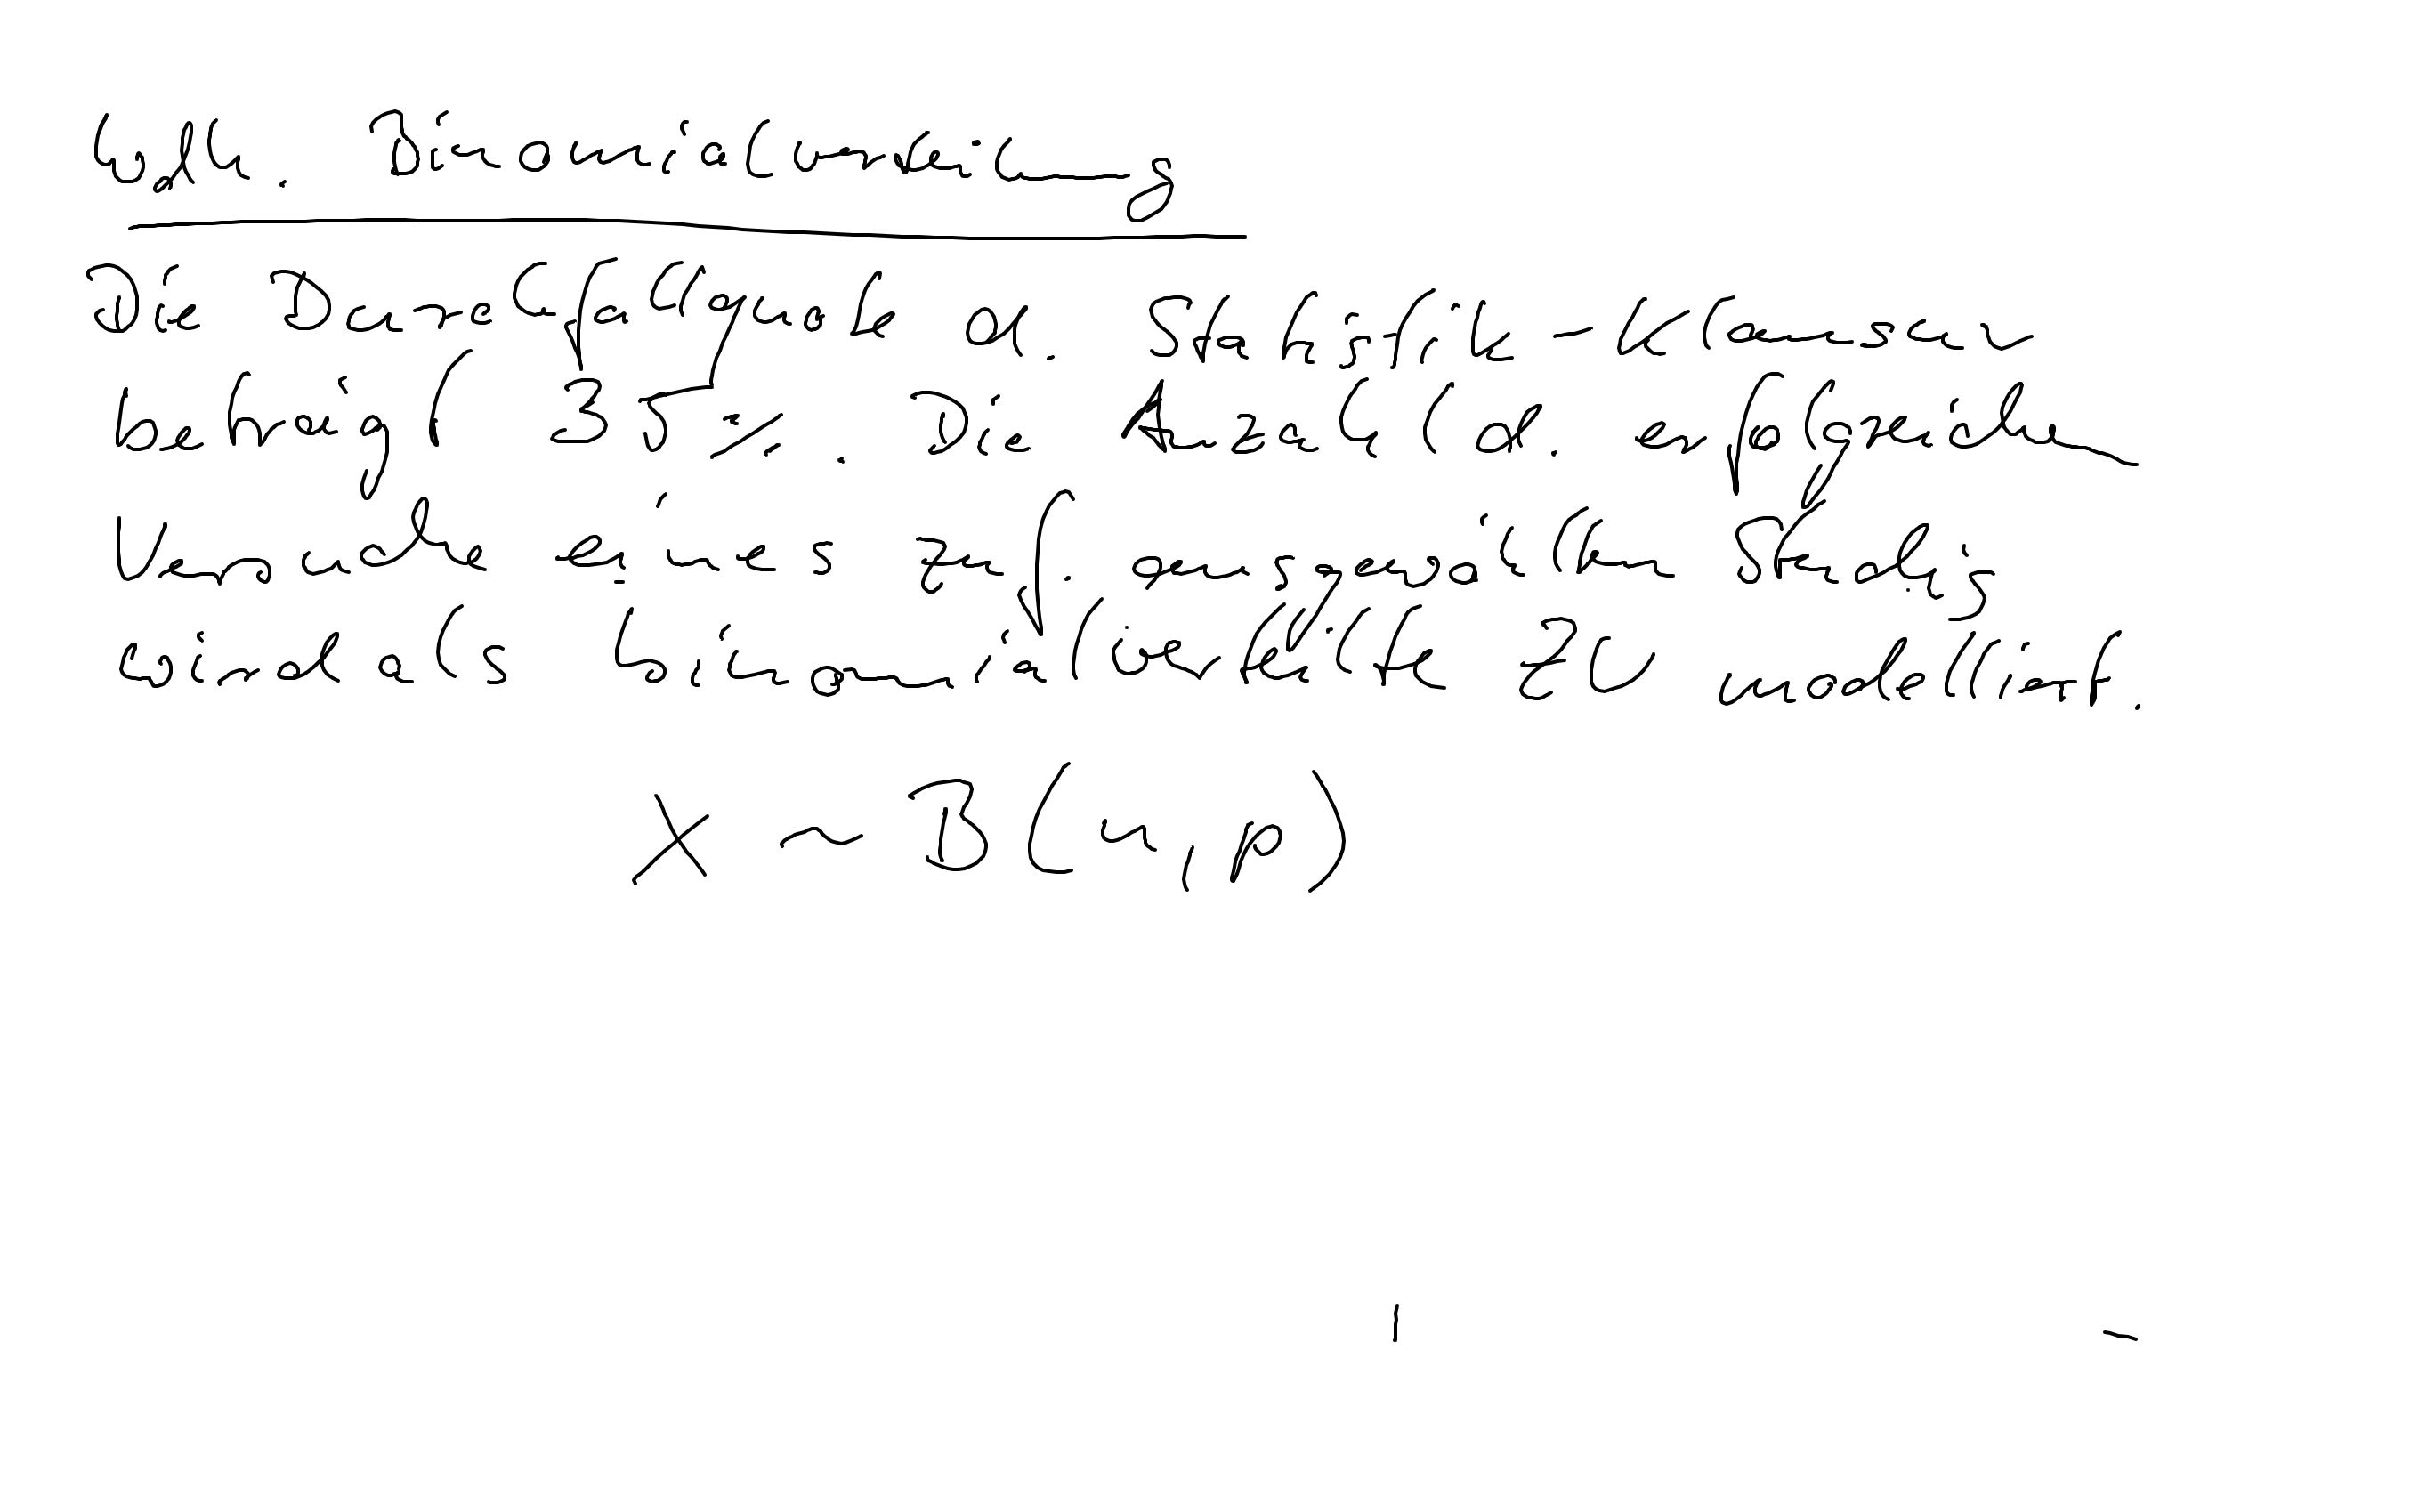 Wdh. Binomialverteilung
Die Durchfallquote d. Statistik-Klausur
beträgt 35%. Die Anzahl d. erfolgreichen
Versuche eines zuf. ausgewählten Studis
wird als binomialverteilte ZV modelliert.
X ~ B(n, p)